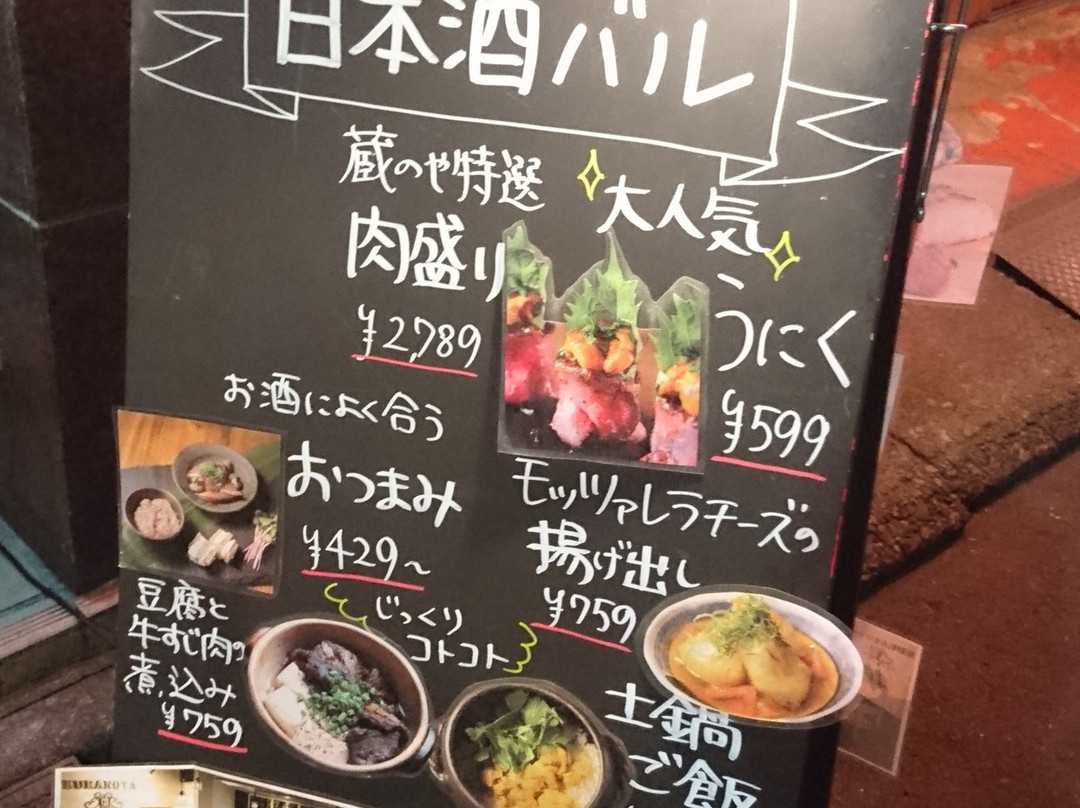 日本酒バル
蔵のや特選
肉盛り
¥2,789
大人気
うにく
¥599
お酒によく合う
おつまみ
¥429~
モッツァレラチーズの
揚げ出し
¥759
豆腐と
牛すじ肉の
煮込み
¥759
じっくり
コトコト
土鍋
ご飯
KURANOYA